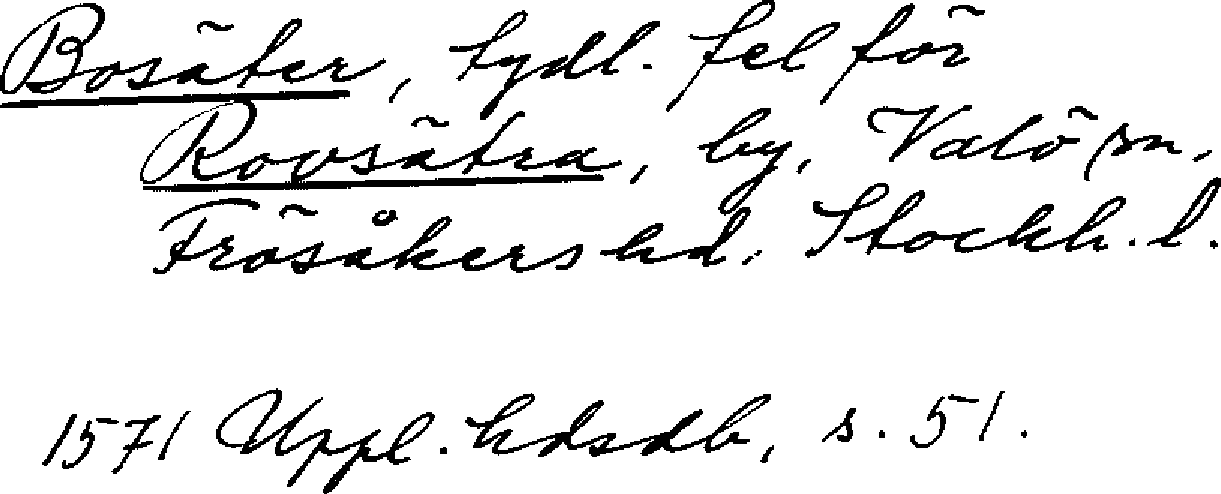 Bosäter, tydl. fel för
Rovsätra, by, Valö sn,
Frösåkers hd, Stockh. l.
1571 Uppl. hdsdb, s. 51.